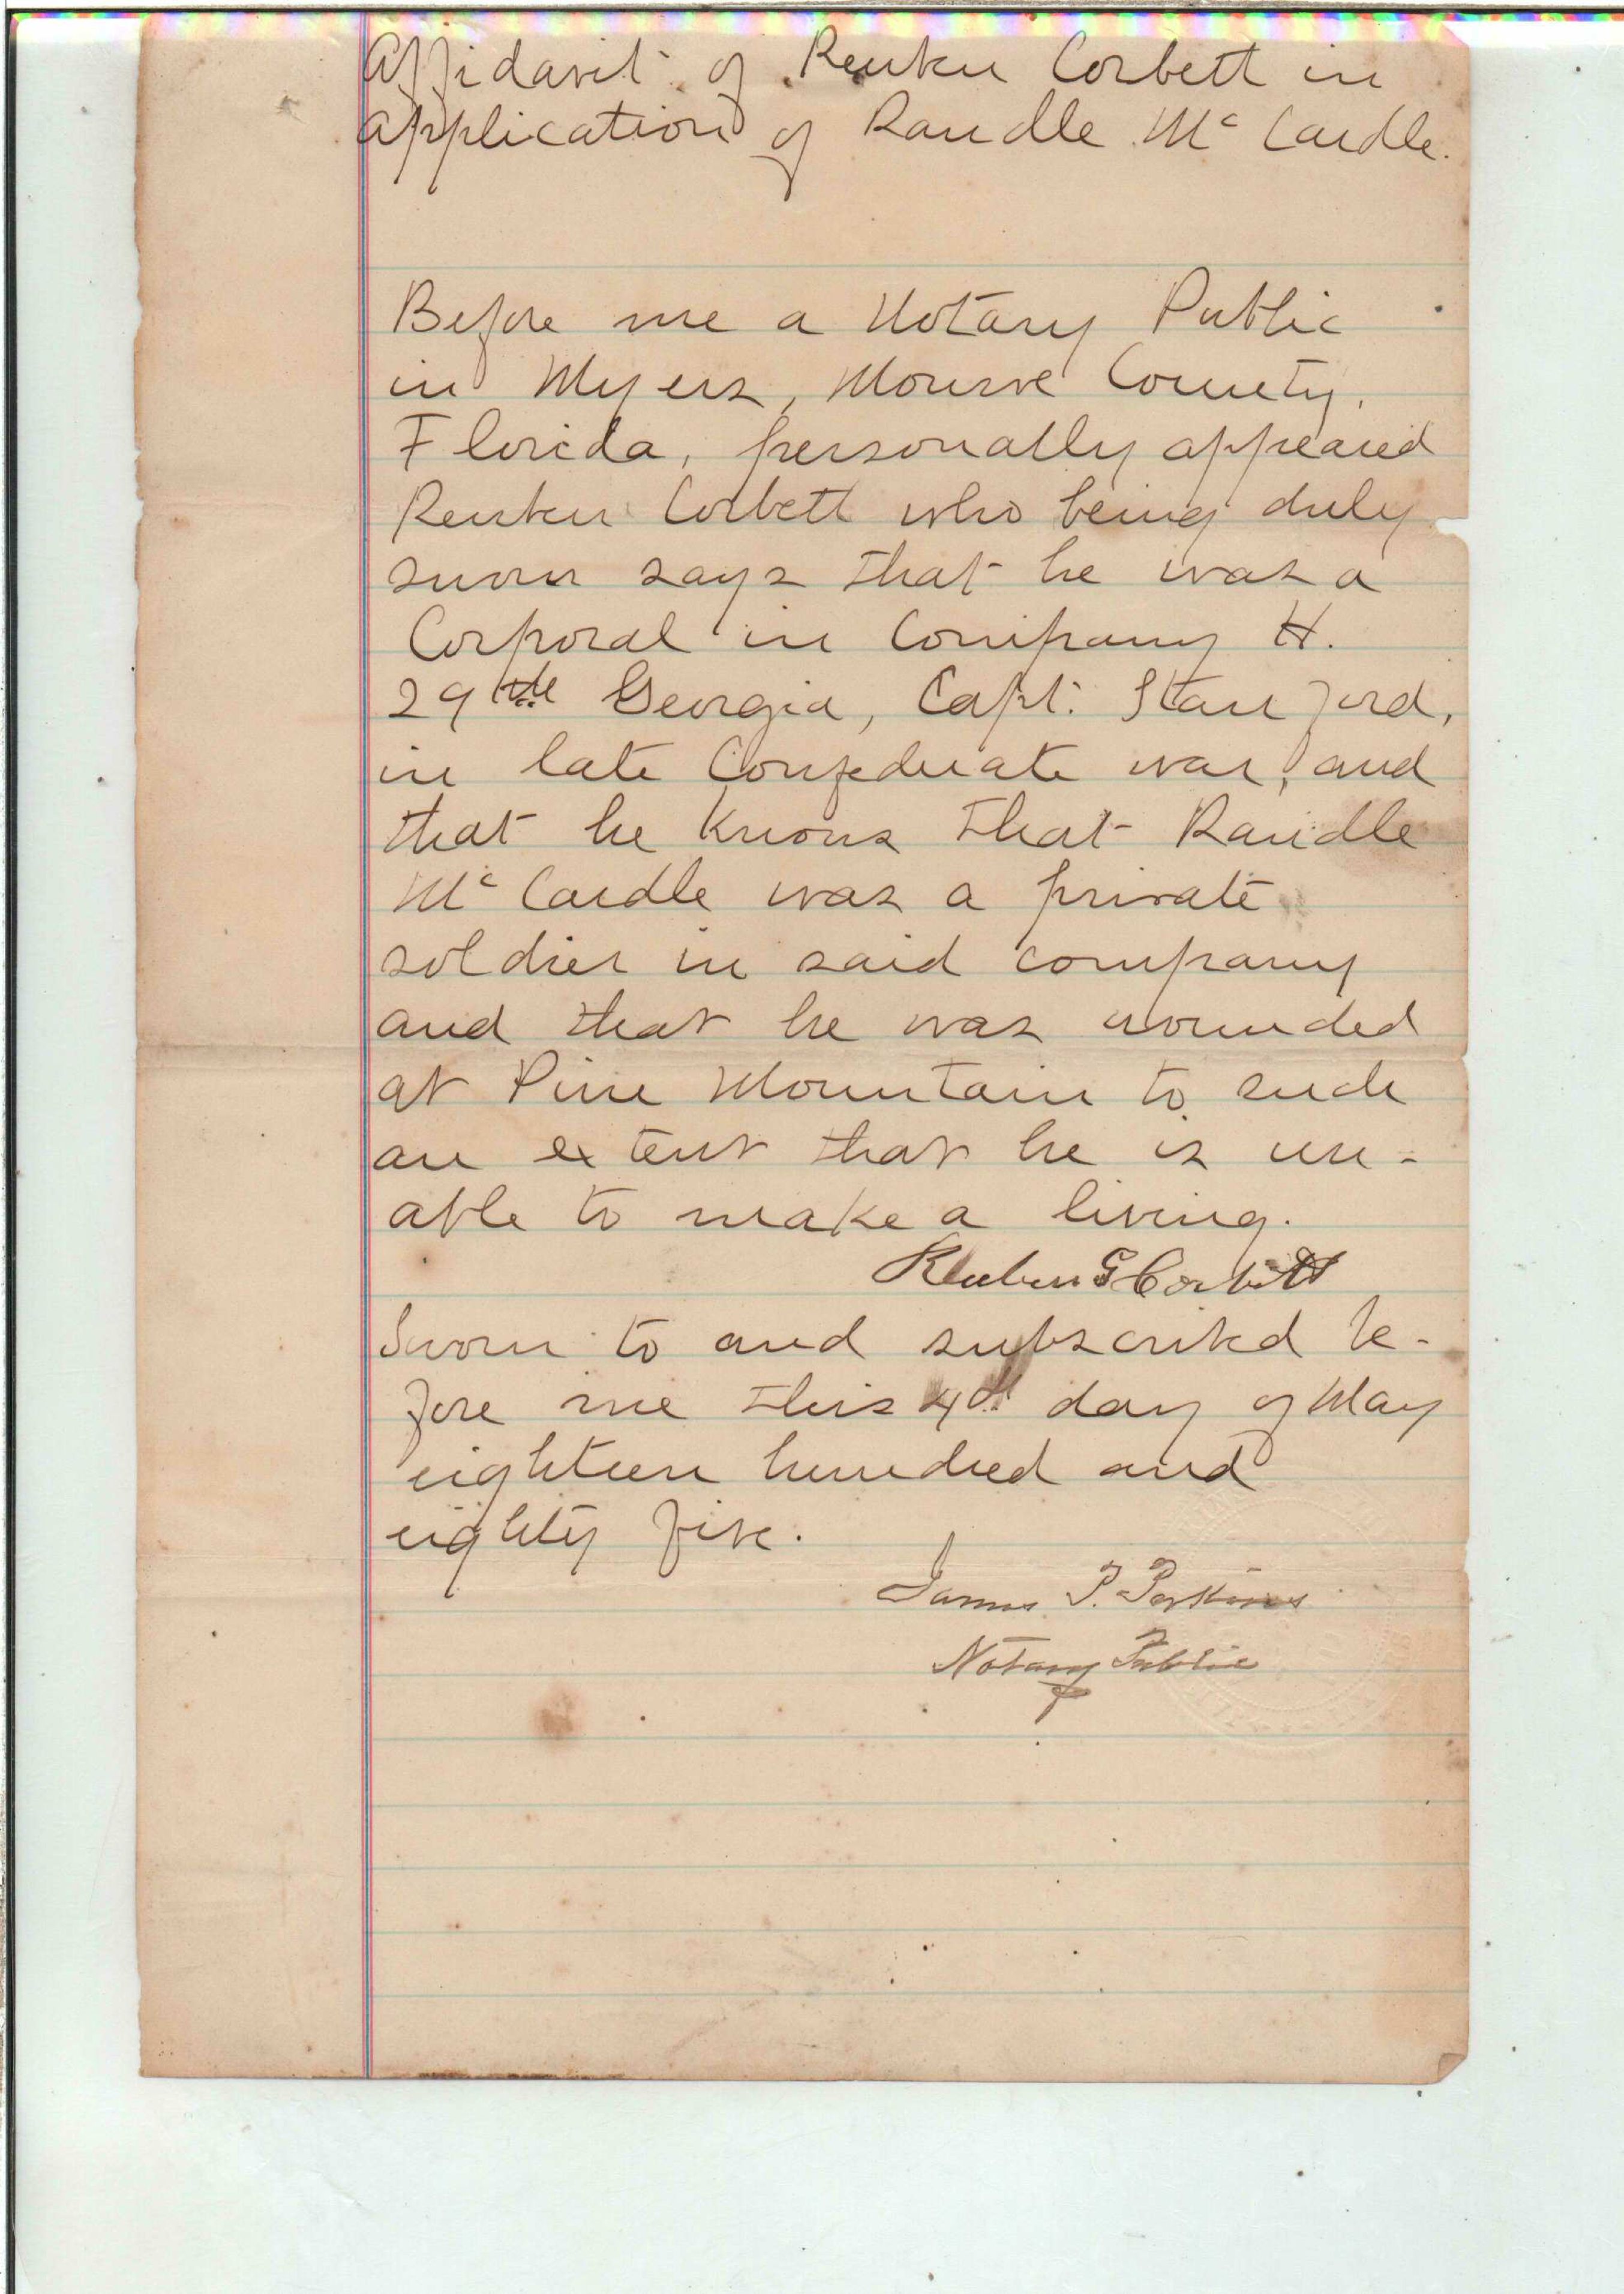 Affidavit of Reuben Corbett in
application of Randle McCardle.
Before me a Notary Public
in Myers, Monroe County,
Florida, personally appeared
Reuben Corbett who being duly
sworn says that he was a
Corporal in Company H.
29th Georgia, Capt. Stanford,
in late Confederate war, and
that he knows that Randle
McCardle was a private
soldier in said company
and that he was wounded
at Pine Mountain to such
an extent that he is un-
able to make a living.
Reuben G Corbitt
Sworn to and subscribed be-
fore me this 4th day of May
eighteen hundred and
eighty five.
James P. Perkins
Notary Public